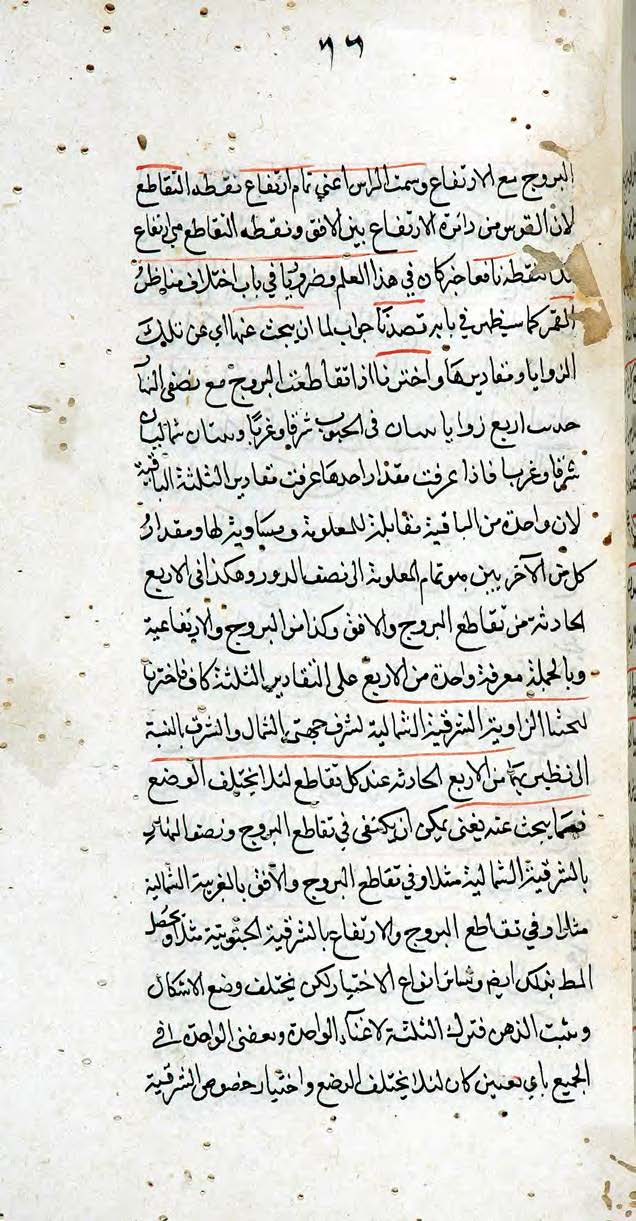 ٦٦
البروج مع الارتفاع وسمت الراس اعني تمام ارتفاع نقطة التقاطع
لان القوس من دائرة الارتفاع بين الافق ونقطة التقاطع هي ارتفاع
النقطة نافعا جز كان في هذا العلم وضروريا في باب اختلاف مناظر
القمر كما سيظهر في بابه قصدنا جواب لما ان يبحث عنها اي عن تلك
الزوايا ومقاديرها واخترنا اذا تقاطعت البروج مع نصف النهار
حدثت اربع زوايا ثنتان في الجنوب شرقا وغربا وثنتان شماليتان
شرقا وغربا فاذا عرفت مقدار احدها عرفت مقادير الثلثة الباقية
لان واحدة من الباقية مقابلة للمعلومة ومساوية لها ومقدار
كل من الآخرين هو تمام المعلومة الى نصف الدور وهكذا في الاربع
الحادثة من تقاطع البروج والافق وكذا من البروج والارتفاعية
وبالجملة معرفة واحدة من الاربع على التقادير الثلثة كاف فاخترنا
لبحثنا الزاوية الشرقية الشمالية لشرف جهتي الشمال والشرق بالنسبة
الى نظيريهما من الاربع الحادثة عند كل تقاطع لئلا يختلف الوضع
فيما يبحث عنه يعني يمكن ان يكتفى في تقاطع البروج ونصف النهار
بالشرقية الشمالية مثلا وفي تقاطع البروج والافق بالغربية الشمالية
مثلا وفي تقاطع البروج والارتفاع بالشرقية الجنوبية مثلا ويحصل
المط بذلك ايض وسائر انواع الاختيار لكن يختلف وضع الاشكال
الذهن فترك الثلثة لاغناء الواحدة الواحدة في
الجميع باي تعيين كان لئلا يختلف الوضع واختيار خصوص الشرقية